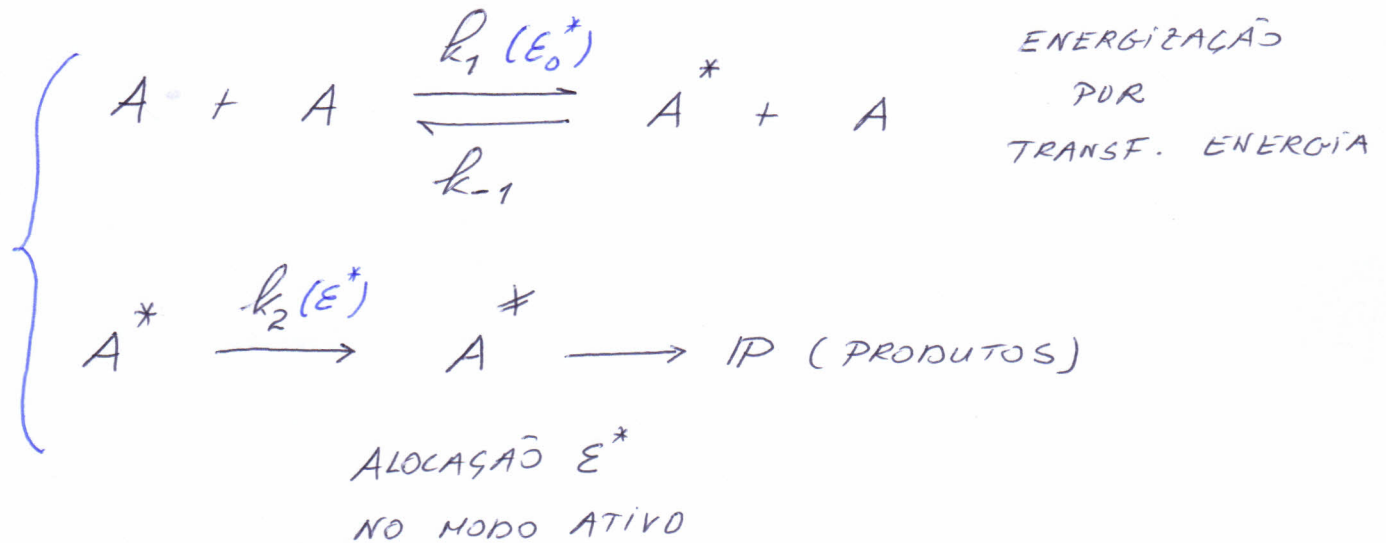 k₁ (ε₀*)
A + A ⇌ A* + A
k₋₁
ENERGIZAÇÃO
POR
TRANSF. ENERGIA
k₂(ε*)
A* → A≠ → IP (PRODUTOS)
ALOCAÇÃO ε*
NO MODO ATIVO